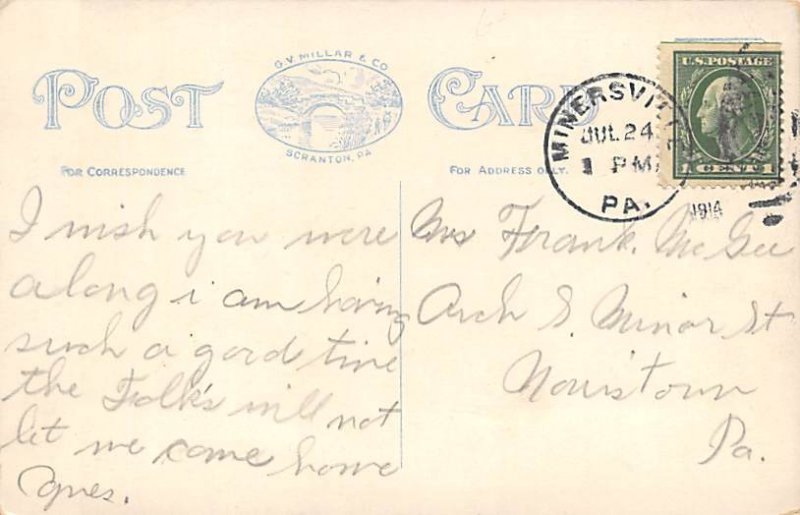 POST CARD
G.V. MILLAR & CO
SCRANTON, PA
FOR CORRESPONDENCE
FOR ADDRESS ONLY.
U.S. POSTAGE
1 CENT 1
MINERSVILLE
JUL 24
1 PM
PA.
1914
I wish you were
along i am having
such a good time
the Folk's will not
let me come home
Agnes.
Mrs Frank. McGee
Arch S. Minor St
Norristown
Pa.